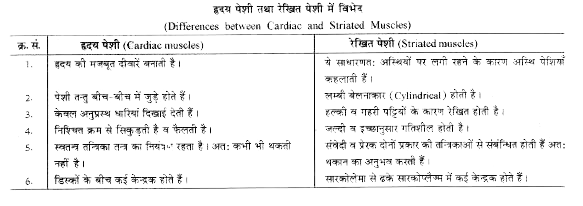 हृदय पेशी तथा रेखित पेशी में विभेद
(Differences between Cardiac and Striated Muscles)
क्र. सं. हृदय पेशी (Cardiac muscles) रेखित पेशी (Striated muscles)
1. हृदय की मजबूत दीवारें बनाती है। ये साधारणत: अस्थियों पर लगी रहने के कारण अस्थि पेशियाँ
कहलाती हैं।
2. पेशी तन्तु बीच-बीच में जुड़े होते हैं। लम्बी बेलनाकार (Cylindrical) होती है।
3. केवल अनुप्रस्थ धारियाँ दिखाई देती हैं। हल्की व गहरी पट्टियों के कारण रेखित होती है।
4. निश्चित क्रम से सिकुड़ती है व फैलती है। जल्दी व इच्छानुसार गतिशील होती है।
5. स्वतन्त्र तन्त्रिका तन्त्र का नियंत्रण रहता है। अत: कभी भी थकती संवेदी व प्रेरक दोनों प्रकार की तन्त्रिकाओं से संबन्धित होती हैं अत:
नहीं है। थकान का अनुभव करती हैं।
6. डिस्कों के बीच कई केन्द्रक होते हैं। सारकोलेमा से ढके सारकोप्लैज्म में कई केन्द्रक होते हैं।